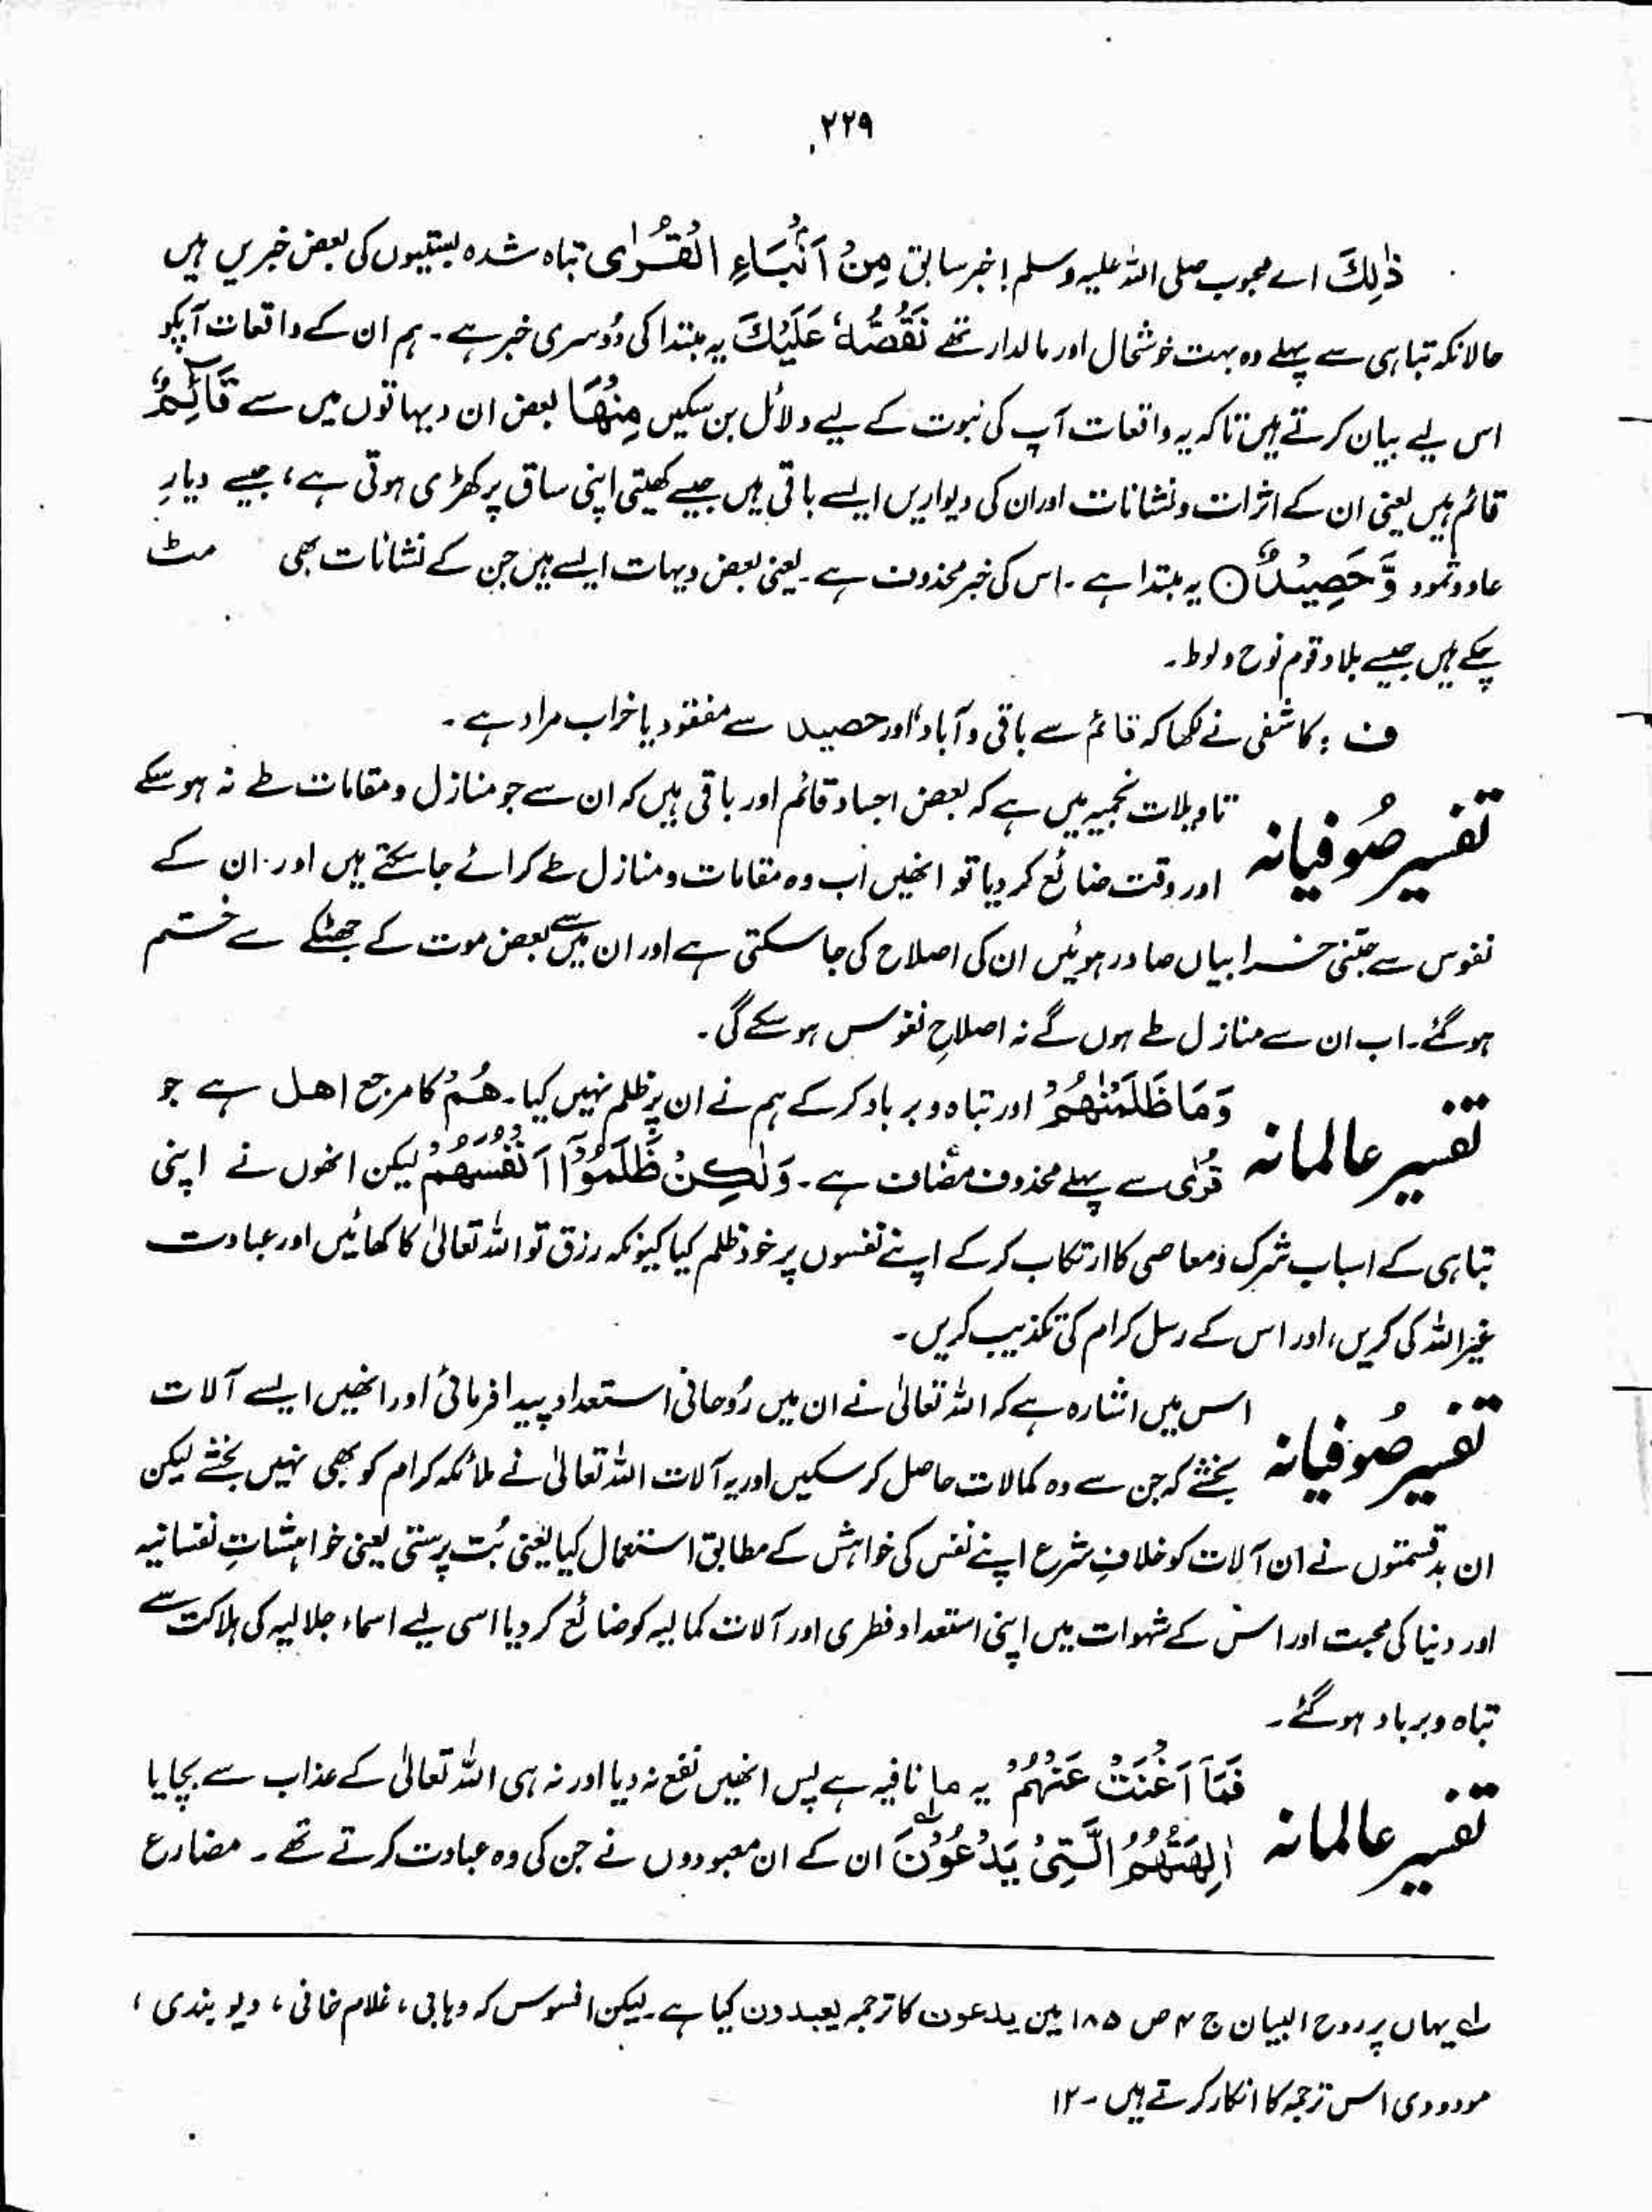 ۲۲۹
ذٰلِكَ اے محبوب صلی اللہ علیہ وسلم! خبر سابق مِنْ اَنْۢبَاءِ الْقُرٰى تباہ شدہ بستیوں کی بعض خبریں ہیں
حالانکہ تباہی سے پہلے وہ بہت خوشحال اور مالدار تھے نَقُصُّهٗ عَلَيْكَ یہ مبتدا کی دُوسری خبر ہے۔ ہم ان کے واقعات آپکو
اس لیے بیان کرتے ہیں تاکہ یہ واقعات آپ کی نبوت کے لیے دلائل بن سکیں مِنْهَا بعض ان دیہاتوں میں سے قَآئِمٌ
قائم ہیں یعنی ان کے اثرات ونشانات اور ان کی دیواریں ایسے باقی ہیں جیسے کھیتی اپنی ساق پر کھڑی ہوتی ہے، جیسے دیارِ
عاد و ثمود وَّحَصِيْدٌ ○ یہ مبتدا ہے۔ اس کی خبر محذوف ہے۔ یعنی بعض دیہات ایسے ہیں جن کے نشانات بھی مٹ
چکے ہیں جیسے بلادِ قوم نوح و لوط۔
ف : کاشفی نے لکھا کہ قائم سے باقی و آباد اور حصید سے مفقود یا خراب مراد ہے۔
تفسیر صُوفیانہ تاویلات نجمیہ میں ہے کہ بعض اجساد قائم اور باقی ہیں کہ ان سے جو منازل و مقامات طے نہ ہو سکے
اور وقت ضائع کر دیا تو انھیں اب وہ مقامات و منازل طے کرائے جا سکتے ہیں اور ان کے
نفوس سے جتنی خرابیاں صادر ہوئیں ان کی اصلاح کی جا سکتی ہے اور ان میں سے بعض موت کے جھٹکے سے ختم
ہو گئے۔ اب ان سے منازل طے ہوں گے نہ اصلاحِ نفوس ہو سکے گی۔
تفسیر عالمانہ وَمَا ظَلَمْنٰهُمْ اور تباہ و برباد کر کے ہم نے ان پر ظلم نہیں کیا۔ هُمْ کا مرجع اهل ہے جو
قُرٰی سے پہلے محذوف مضاف ہے۔ وَلٰكِنْ ظَلَمُوْٓا اَنْفُسَهُمْ لیکن انھوں نے اپنی
تباہی کے اسباب شرک ومعاصی کا ارتکاب کر کے اپنے نفسوں پر خود ظلم کیا کیونکہ رزق تو اللہ تعالیٰ کا کھائیں اور عبادت
غیراللہ کی کریں، اور اس کے رسل کرام کی تکذیب کریں۔
تفسیر صُوفیانہ اس میں اشارہ ہے کہ اللہ تعالیٰ نے ان میں رُوحانی استعداد پیدا فرمائی اور انھیں ایسے آلات
بخشے کہ جن سے وہ کمالات حاصل کر سکیں اور یہ آلات اللہ تعالیٰ نے ملائکہ کرام کو بھی نہیں بخشے لیکن
ان بدقسمتوں نے ان آلات کو خلافِ شرع اپنے نفس کی خواہش کے مطابق استعمال کیا یعنی بُت پرستی یعنی خواہشاتِ نفسانیہ
اور دنیا کی محبت اور اس کے شہوات میں اپنی استعداد فطری اور آلات کمالیہ کو ضائع کر دیا اسی لیے اسماء جلالیہ کی ہلاکت سے
تباہ و برباد ہو گئے۔
تفسیر عالمانہ فَمَآ اَغْنَتْ عَنْهُمْ یہ ما نافیہ ہے پس انھیں نفع نہ دیا اور نہ ہی اللہ تعالیٰ کے عذاب سے بچایا
اٰلِهَتُهُمُ الَّتِىْ يَدْعُوْنَ لہ ان کے ان معبودوں نے جن کی وہ عبادت کرتے تھے۔ مضارع
لہ یہاں پر روح البیان ج ۴ ص ۱۸۵ میں یدعون کا ترجمہ یعبدون کیا ہے۔ لیکن افسوس کہ وہابی، غلام خانی، دیوبندی،
مودودی اس ترجمہ کا انکار کرتے ہیں۔ ۱۲